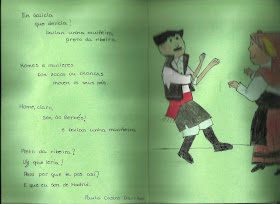 En Galicia
que delicia!
bailan unha muiñeira
preto da ribeira.
Homes e mulleres
con zocos ou
moven os seus pés.
Home, claro,
son do Berbés!
e bailan unha muiñeira
Preto da ribeira?
Uy, que feria!
Pero por que te pos así?
E que eu son de Madrid.
Paula Castro